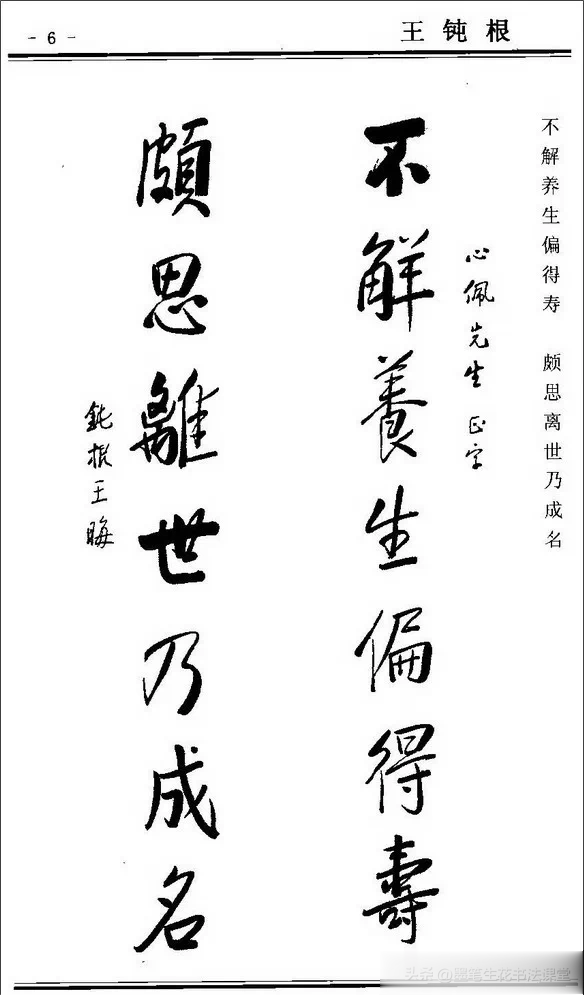 - 6 -
王钝根
不解养生偏得寿 颇思离世乃成名
心佩先生正字
不解養生偏得壽
頗思離世乃成名
鈍根王晦
头条@墨笔生花书法课堂